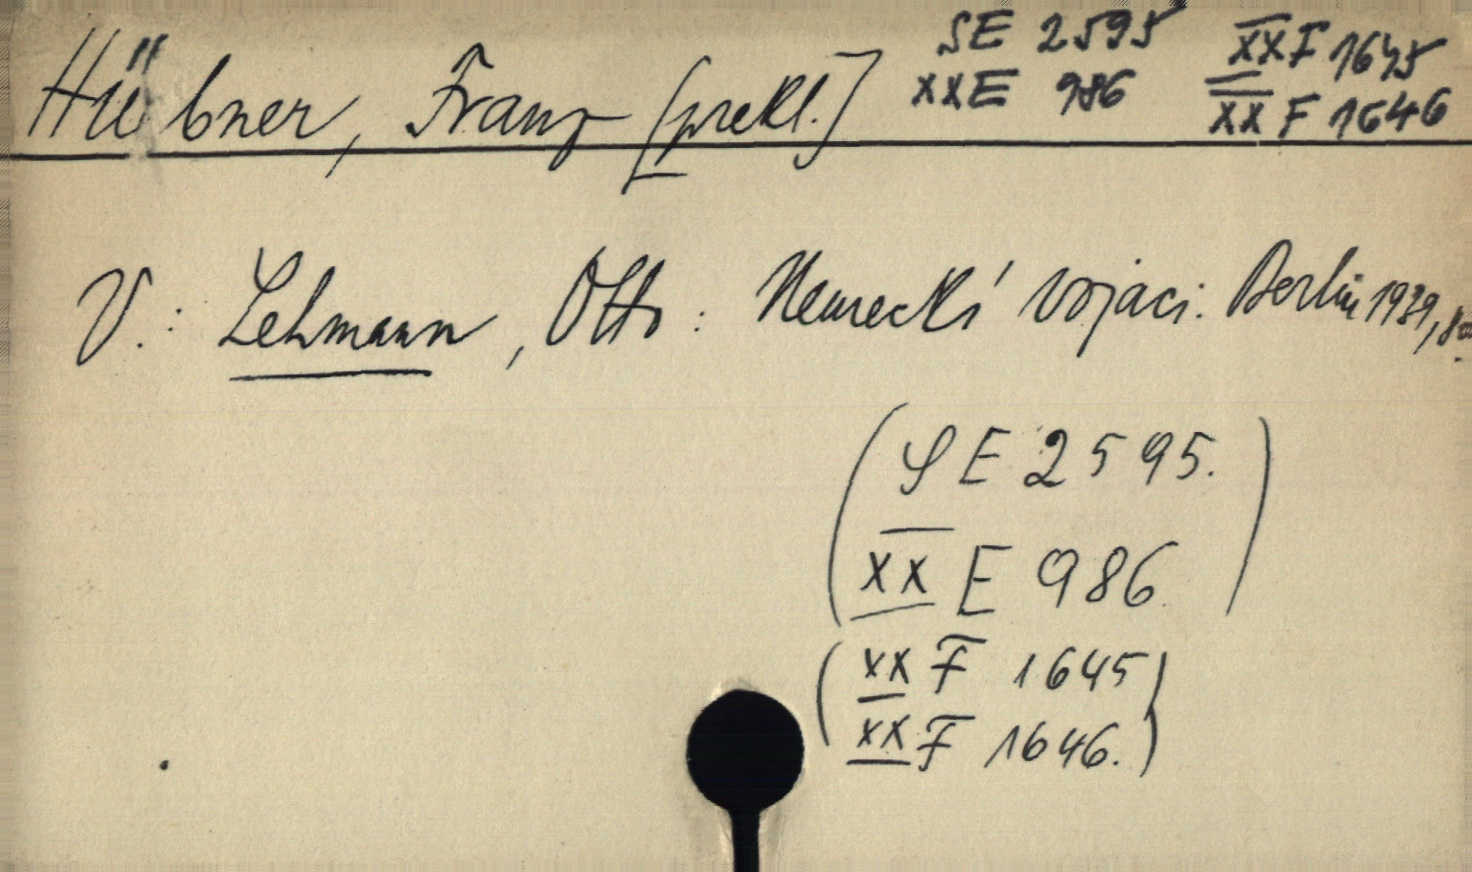 Hübner, Franz [prekl.]
SE 2595
XXE 986
XXF 1645
XX F 1646
V.: Lehmann, Otto: Nemeckí vojaci. Berlin 1939,
(SE 2595.
XX E 986)
(XX F 1645
XX F 1646.)